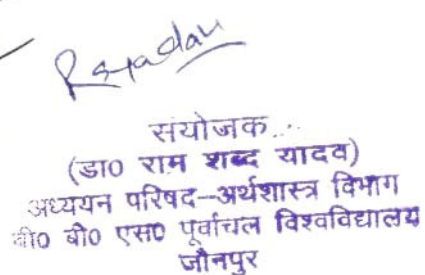 RSYadav
संयोजक
(डा0 राम शब्द यादव)
अध्ययन परिषद–अर्थशास्त्र विभाग
वी0 बी0 एस0 पूर्वांचल विश्वविद्यालय
जौनपुर